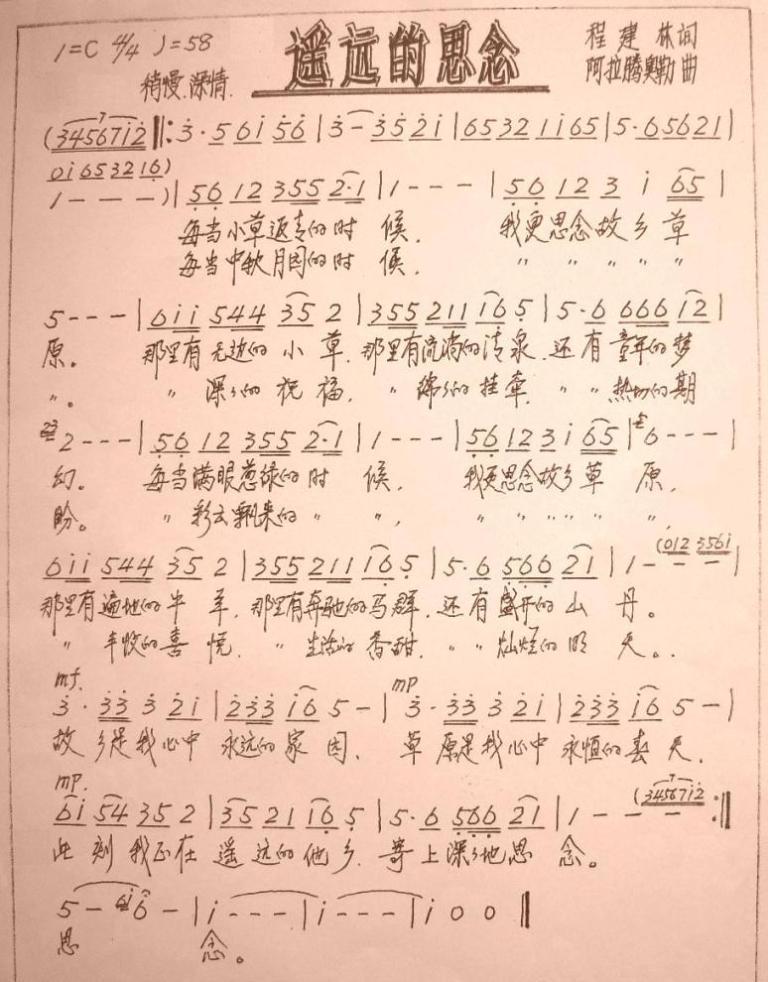 1=C 4/4 ♩=58
遥远的思念
程建林词
稍慢.深情.
阿拉腾奥勒曲
(3456712‖: 3·561 56|3-3521|65321165|5·65621|
01653216)
1---)|56 12 355 2·1|1---|56 12 3 1 65|
每当小草返青的时候.我更思念故乡草
每当中秋月圆的时候.〃〃〃〃〃
5---|611 544 35 2|355 211 16 5|5·6 666 12|
原。那里有无边的小草.那里有流淌的清泉.还有童年的梦
〃。〃深々的祝福.〃绵々的挂牵.〃〃热切的期
2---|56 12 355 2·1|1---|56 12 3 1 65|6---|
幻。每当满眼葱绿的时候.我更思念故乡草原.
盼。〃彩云飘来的〃〃,〃〃〃〃〃〃
(012 3561
611 544 35 2|355 211 16 5|5·6 566 21|1---|
那里有遍地的牛羊.那里有奔驰的马群.还有盛开的山丹。
〃丰收的喜悦.〃生活的香甜.〃〃灿烂的明天。
mf. mp
3·33 3 21|233 16 5-|3·33 3 21|233 16 5-|
故乡是我心中永远的家园.草原是我心中永恒的春天.
mp.
(3456712
61 54 35 2|35 21 16 5|5·6 566 21|1---:‖
此刻我正在遥远的他乡.寄上深々地思念。
5-6-|1---|1---|1 0 0‖
思念。